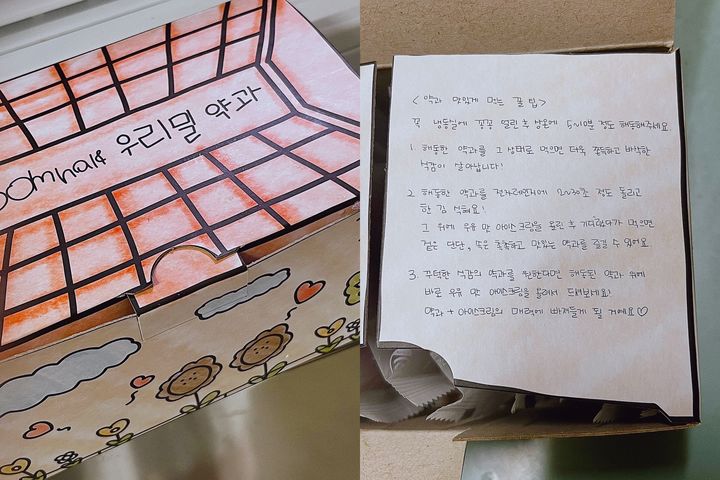 oomhalf 우리밀 약과
< 약과 맛있게 먹는 꿀 팁 >
꼭 냉동실에 꽁꽁 얼린 후 상온에 5~10분 정도 해동해주세요.
1. 해동한 약과를 그 상태로 먹으면 더욱 쫀득하고 바삭한
식감이 살아납니다!
2. 해동한 약과를 전자레인지에 20~30초 정도 돌리고
한 김 식혀요!
그 위에 우유 맛 아이스크림을 올린 후 기다렸다가 먹으면
겉은 단단, 속은 촉촉하고 맛있는 약과를 즐길 수 있어요
3. 꾸덕한 식감의 약과를 원한다면 해동된 약과 위에
바로 우유 맛 아이스크림을 올려서 드셔보세요!
약과 + 아이스크림의 매력에 빠져들게 될 거예요♡